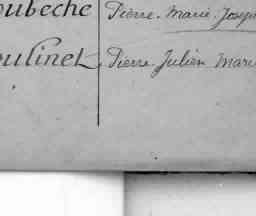 oubeche Pierre Marie Josep
oulinet Pierre Julien Mari